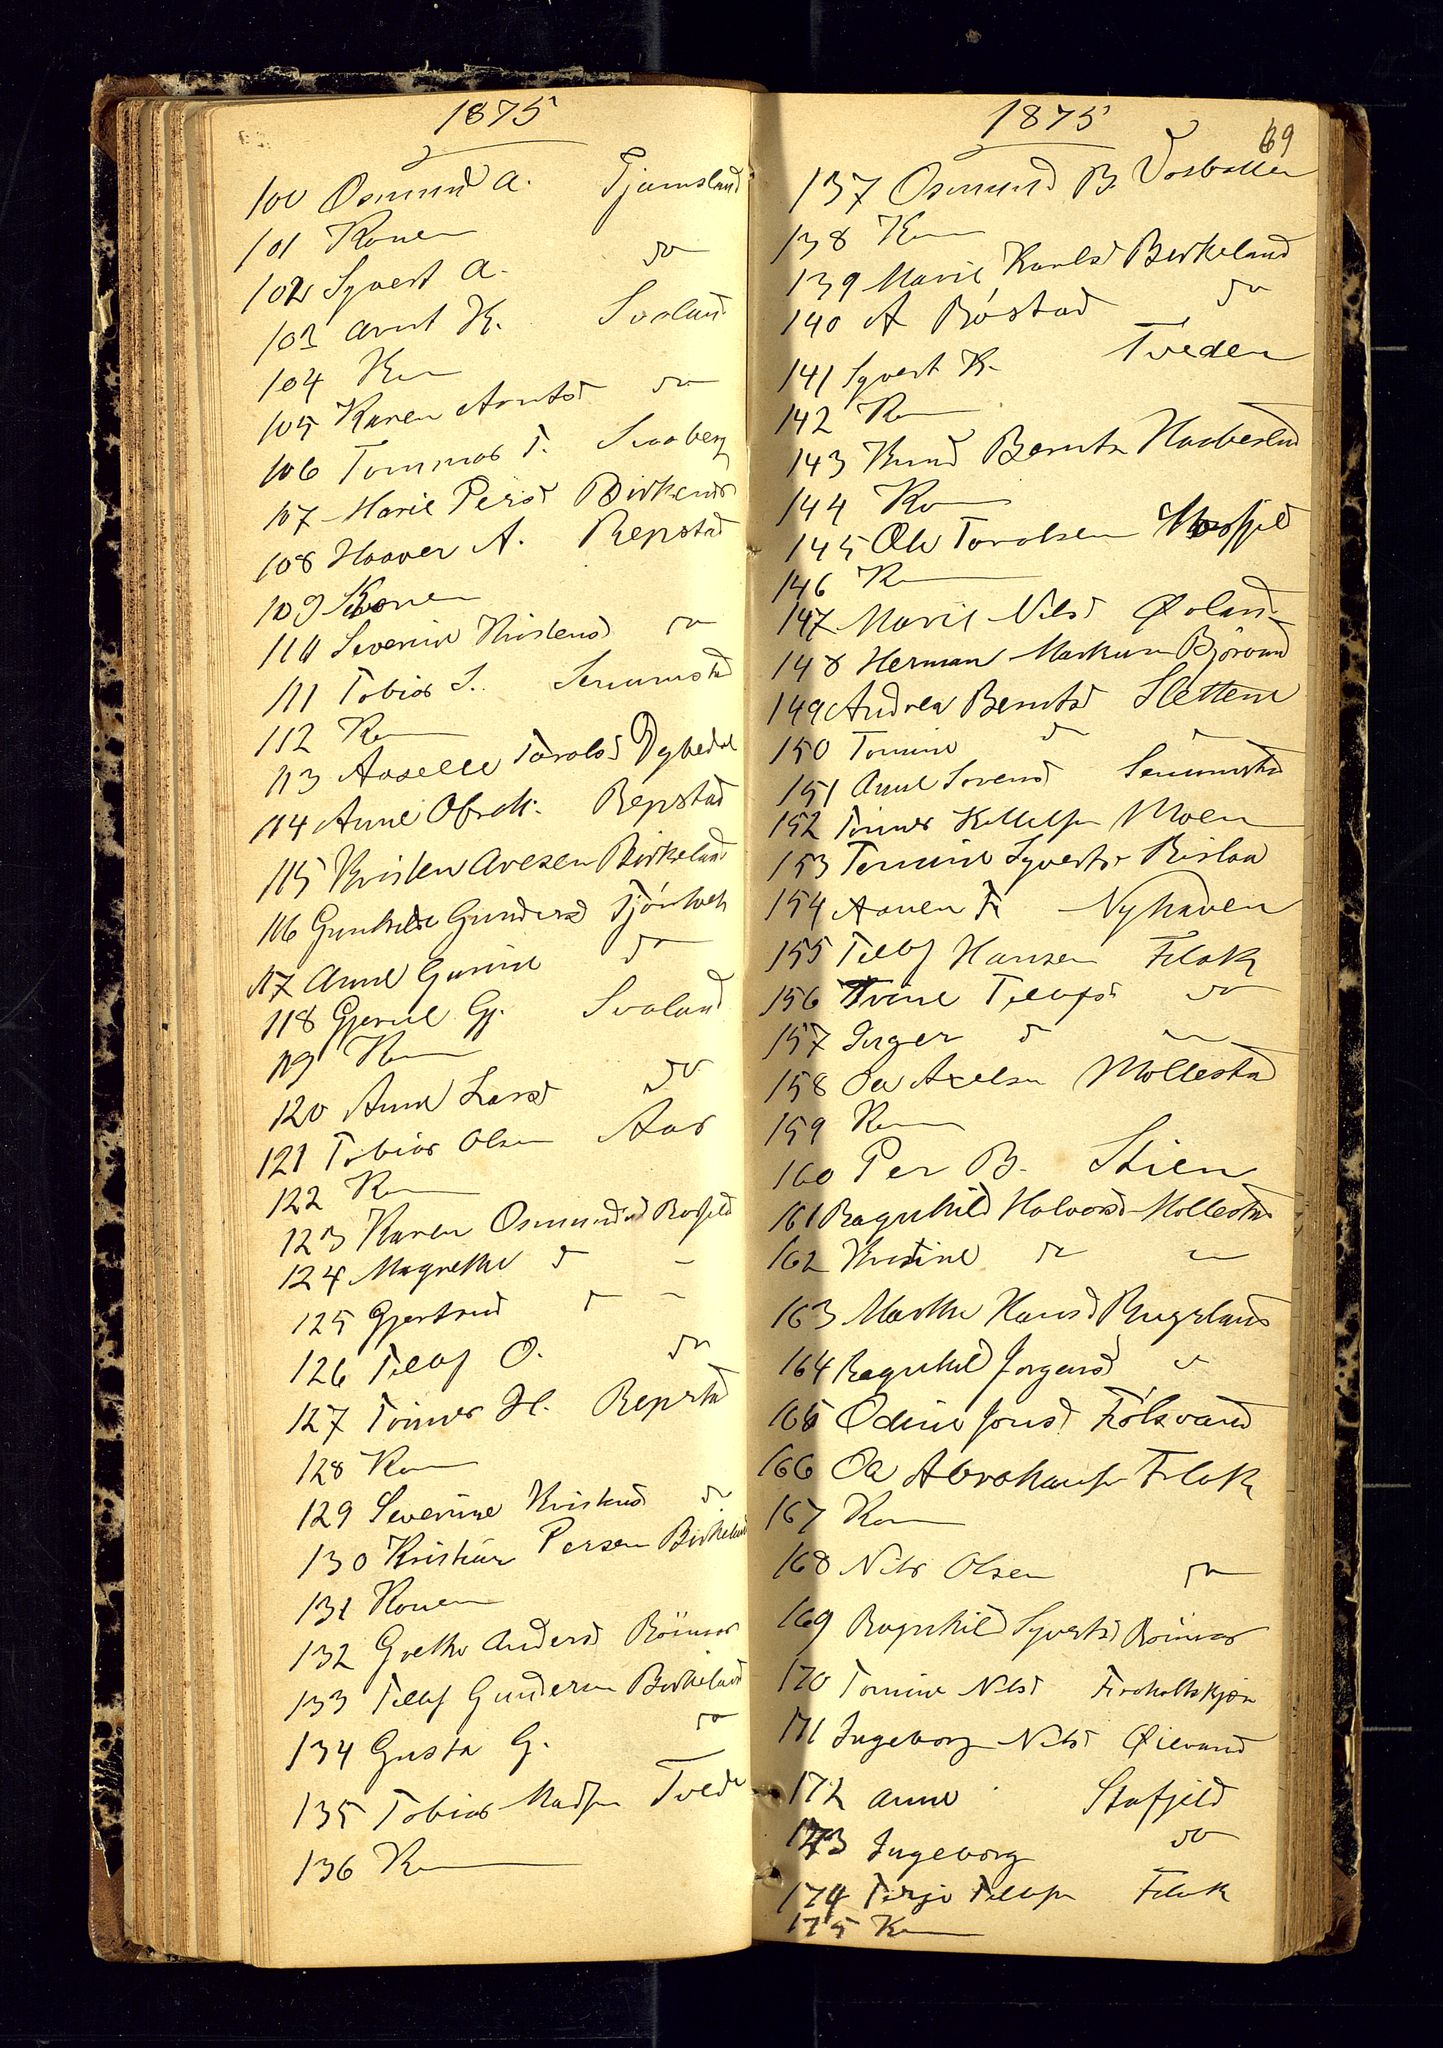 1875
100 Osmund A. Tjamsland
101 Konen
102 Syvert A. do
103 Arnt K. Svaland
104 Kon
105 Karen Arntsd do
106 Tommas T. Svaberg
107 Marie Persd Birkeland
108 Haaver A. Repstad
109 Konen
110 Severine Kristensd do
111 Tobias S. Senumstad
112 Kon
113 Aaselle Tarolsd Dybedal
114 Anne Olsdt. Repstad
115 Kristen Aresen Birkeland
116 Gunhilde Gundersd
117 Anne Gurine do
118 Gjerul Gj. Svaland
119 Kon
120 Anne Larsd do
121 Tobias Olsen Aas
122 Kon
123 Karen Osmundsd Rosfjeld
124 Magrethe d -
125 Gjertrud d -
126 Tellef O. do
127 Tönnes H. Repstad
128 Kon
129 Severine Kristensd do
130 Kristian Persen Birkeland
131 Konen
132 Grethe Andersd Röinaas
133 Tellef Gundersen Birkeland
134 Gusta G. do
135 Tobias Madsen Tvede
136 Kon
1875
69
137 Osmund B. Vasbakken
138 Kon
139 Marie Karlsd Birkeland
140 A Röstad do
141 Syvert K. Tveden
142 Kon
143 Knud Berntsen
144 Kon
145 Ole Tarolsen
146 Kon
147 Marie Nilsd
148 Herman Markussen Björvand
149 Andrea Berntsd Slettene
150 Tomine d -
151 Anne Sorensd Senumstad
152 Tönnes Kittelsen Moen
153 Tomine Syvertsd Rislaa
154 Aanen F. Nyhaven
155 Tellef Hansen Flak
156 Trine Tellefsd do
157 Inger d -
158 Ole Axelsen Mollestad
159 Kon
160 Per B. Stien
161 Ragnhild Halvorsd Mollestad
162 Kristine do -
163 Marthe Hansd Rugsland
164 Ragnhild Jörgensd -
165 Odine Jonsd
166 Ole Abrahamsen Flak
167 Kon
168 Nils Olsen do
169 Ragnhild Syvertsd Röinaas
170 Tomine Nilsd
171 Ingeborg Nilsd Øievand
172 Anne Stafjeld
173 Ingeborg do
174 Terje Tellefsen Flak
175 Kon